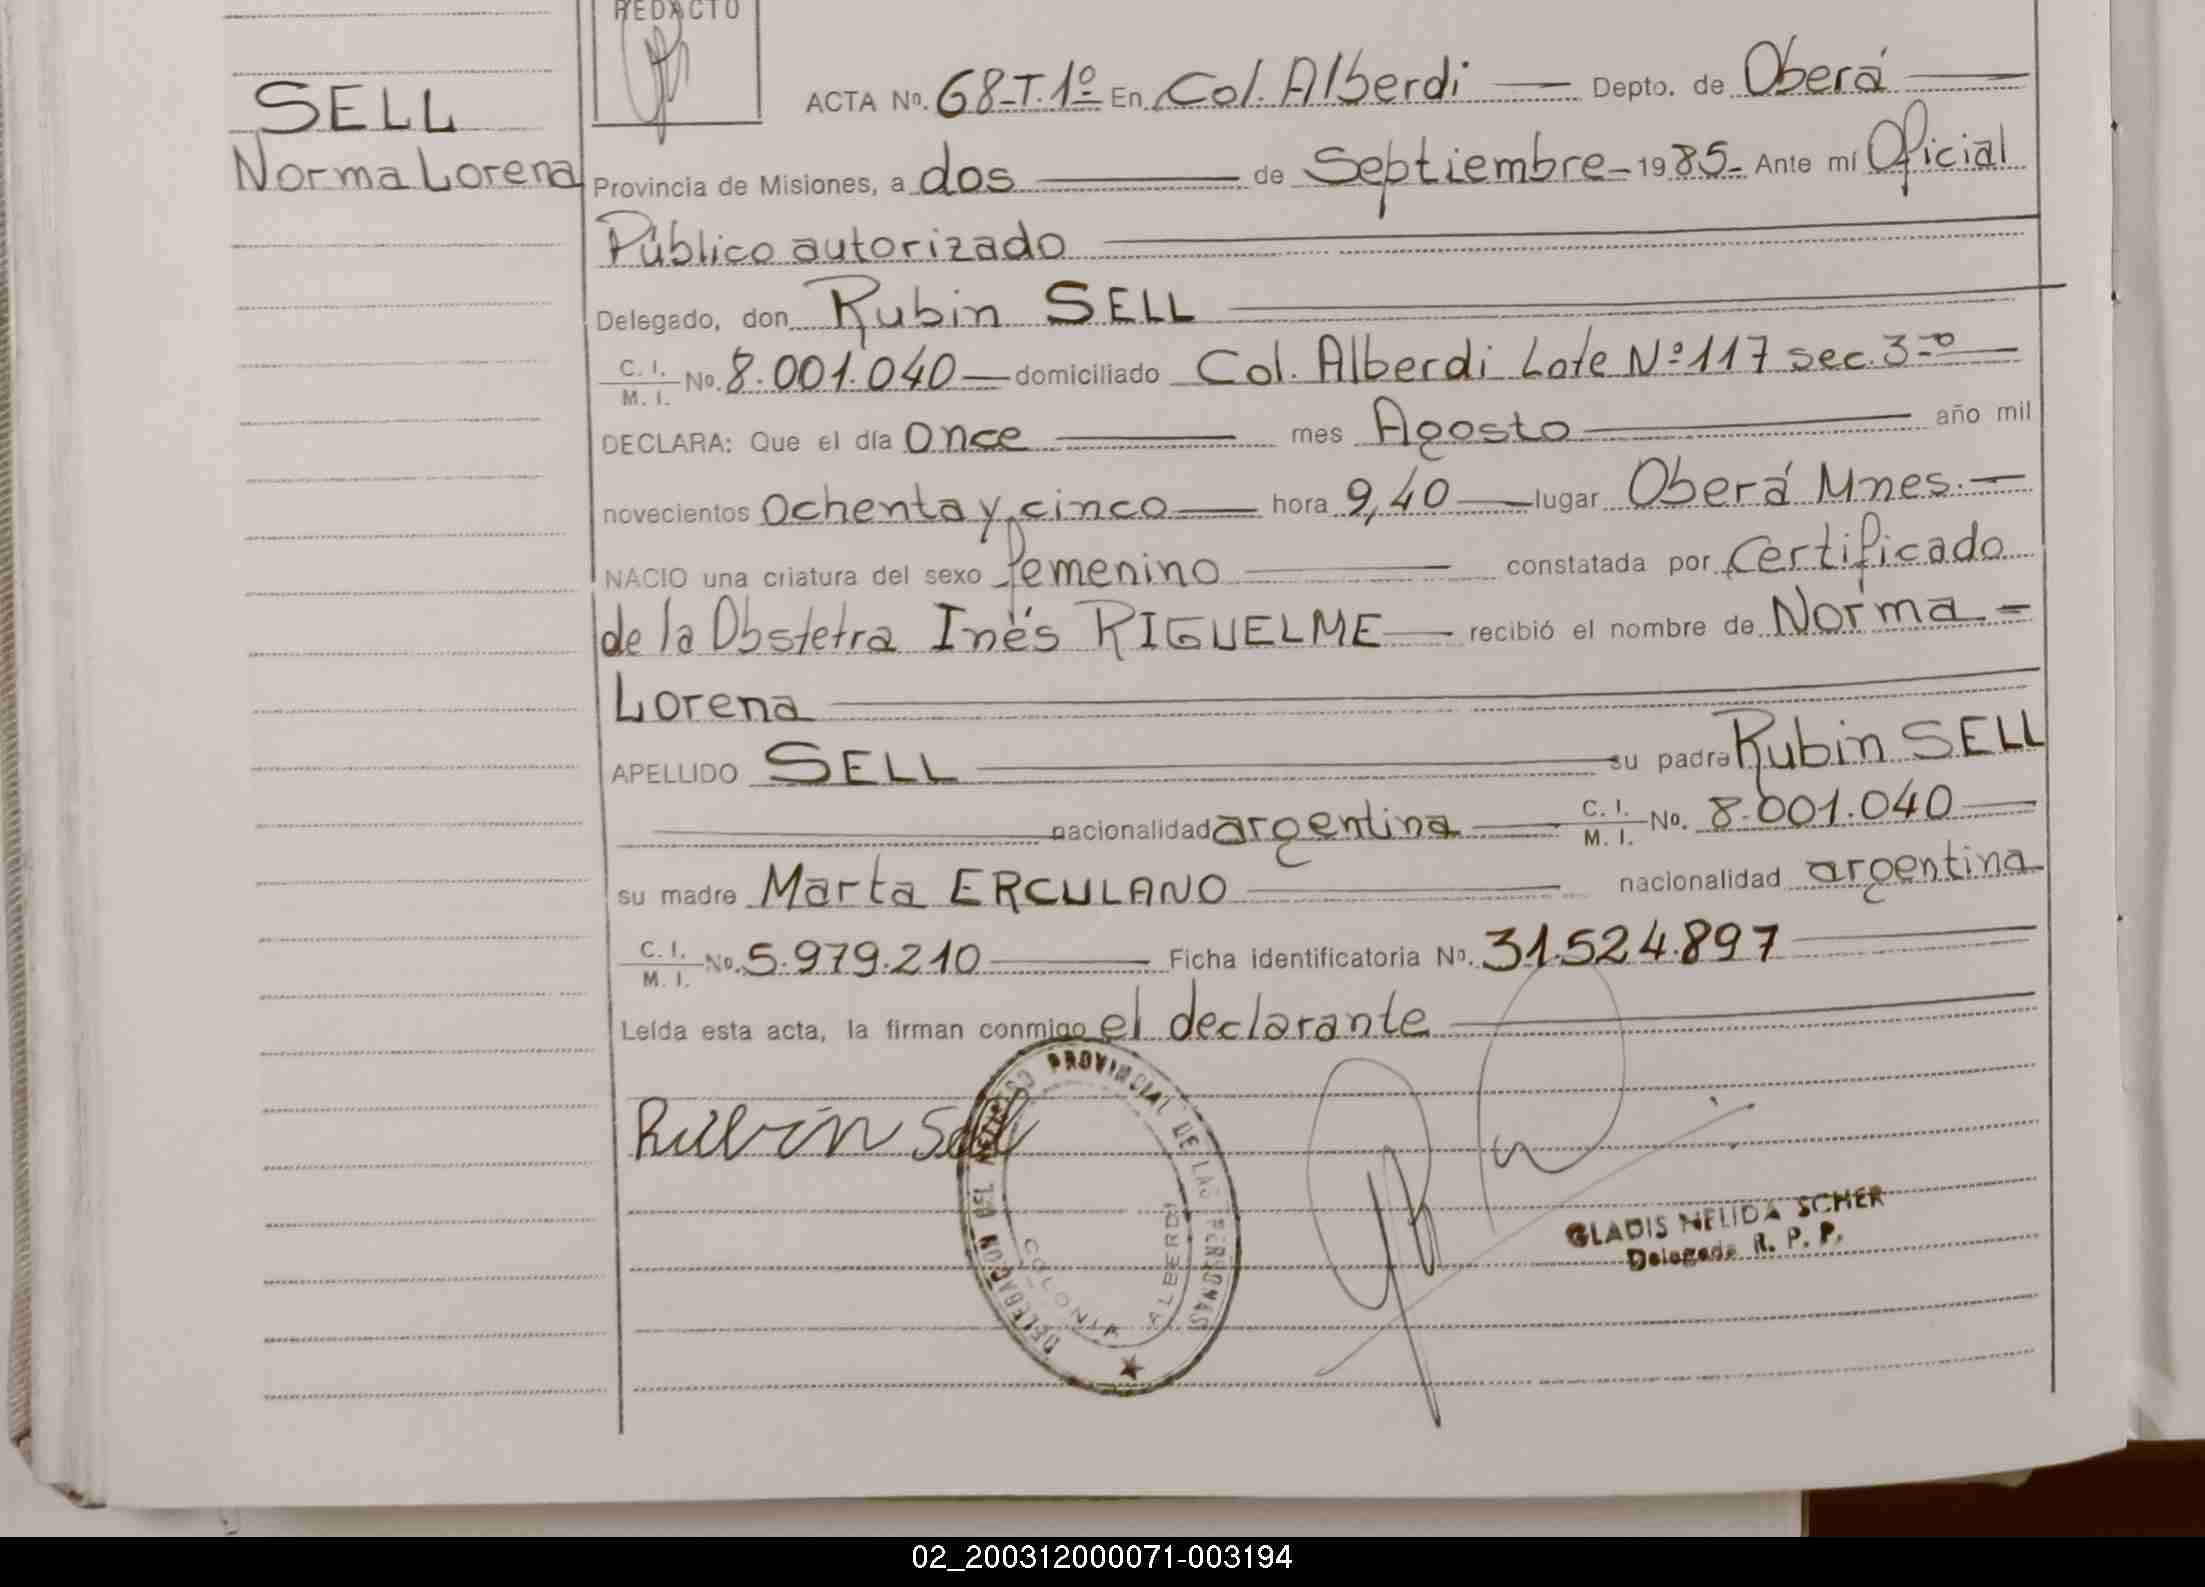 REDACTO
ACTA No. 68-T.1º En Col. Alberdi — Depto. de Oberá —
SELL
Norma Lorena
Provincia de Misiones, a dos — de Septiembre - 1985 - Ante mí Oficial
Público autorizado
Delegado, don Rubin SELL
C. I. / M. I. No. 8.001.040 — domiciliado Col. Alberdi Lote Nº 117 sec. 3-º —
DECLARA: Que el día once — mes Agosto — año mil
novecientos ochenta y cinco — hora 9,40 — lugar Oberá Mnes. —
NACIO una criatura del sexo femenino — constatada por Certificado
de la Obstetra Inés RIGUELME — recibió el nombre de Norma —
Lorena
APELLIDO SELL — su padre Rubin SELL
nacionalidad argentina — C. I. / M. I. No. 8.001.040 —
su madre Marta ERCULANO — nacionalidad argentina
C. I. / M. I. No. 5.979.210 — Ficha identificatoria No. 31.524.897 —
Leída esta acta, la firman conmigo el declarante —
Rubin Sell
DELEGACION DEL REGISTRO PROVINCIAL DE LAS PERSONAS
COLONIA ALBERDI
GLADIS NELIDA SCHER
Delegada R. P. P.
02_200312000071-003194